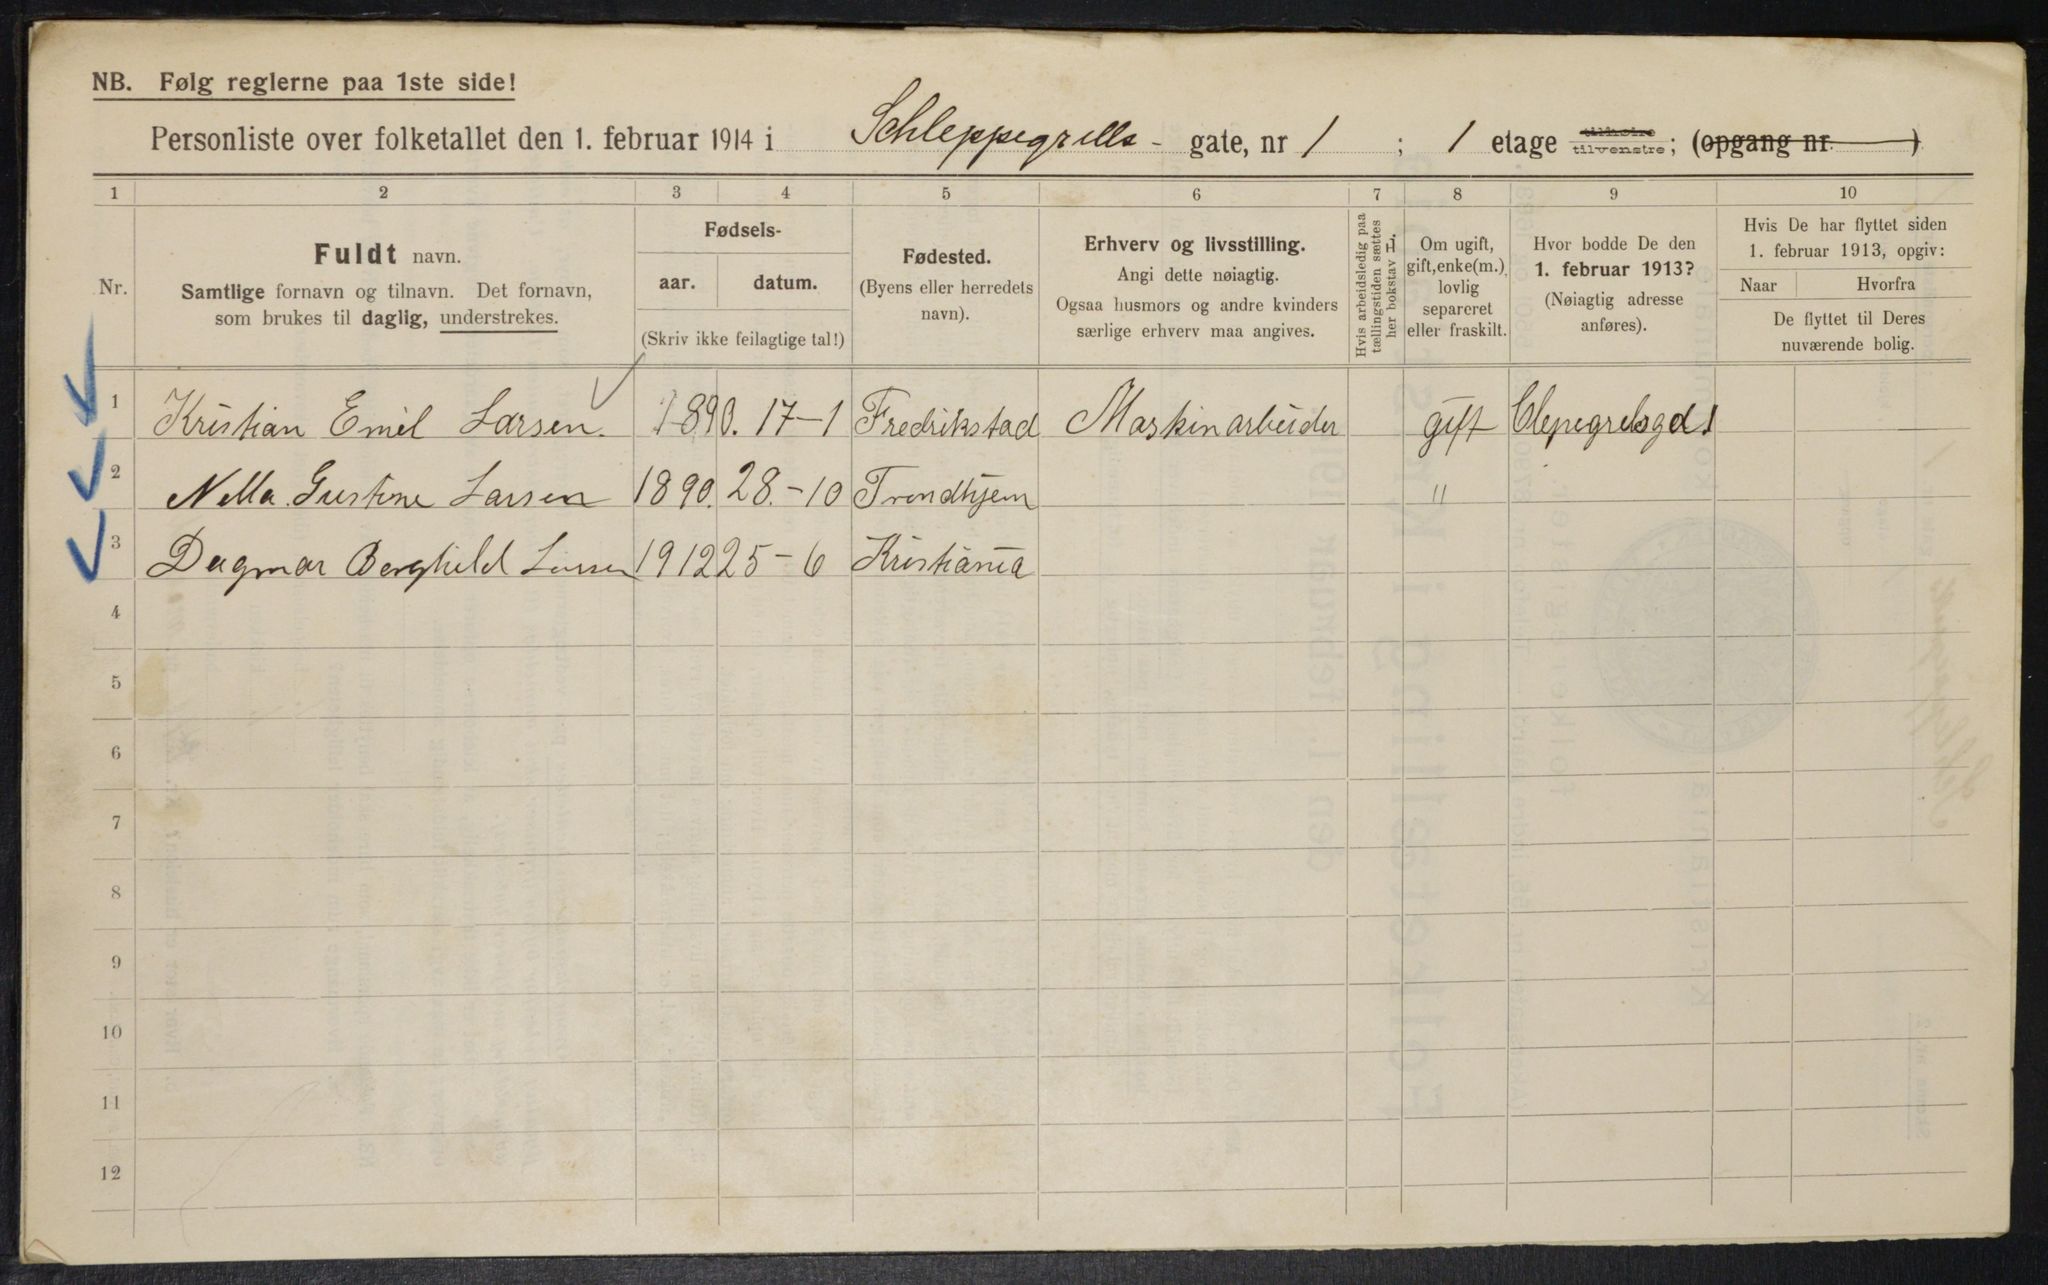 NB. Følg reglerne paa 1ste side!
Personliste over folketallet den 1. februar 1914 i Schleppegrells- gate, nr 1 ; 1 etage tilhøire tilvenstre; (opgang nr. )
1 2 3 4 5 6 7 8 9 10
Nr.
Fuldt navn.
Samtlige fornavn og tilnavn. Det fornavn,
som brukes til daglig, understrekes.
Fødsels-
aar. datum.
(Skriv ikke feilagtige tal!)
Fødested.
(Byens eller herredets
navn).
Erhverv og livsstilling.
Angi dette nøiagtig.
Ogsaa husmors og andre kvinders
særlige erhverv maa angives.
Hvis arbeidsledig paa
tællingstiden sættes
her bokstav L.
Om ugift,
gift, enke(m.)
lovlig
separeret
eller fraskilt.
Hvor bodde De den
1. februar 1913?
(Nøiagtig adresse
anføres).
Hvis De har flyttet siden
1. februar 1913, opgiv:
Naar Hvorfra
De flyttet til Deres
nuværende bolig.
1 Kristian Emil Larsen. 1890. 17-1 Fredrikstad Maskinarbeider gift Clepegrelsgd 1
2 Nella Gustine Larsen 1890. 28.-10 Trondhjem "
3 Dagmar Borghild Larsen 1912 25-6 Kristiania
4
5
6
7
8
9
10
11
12